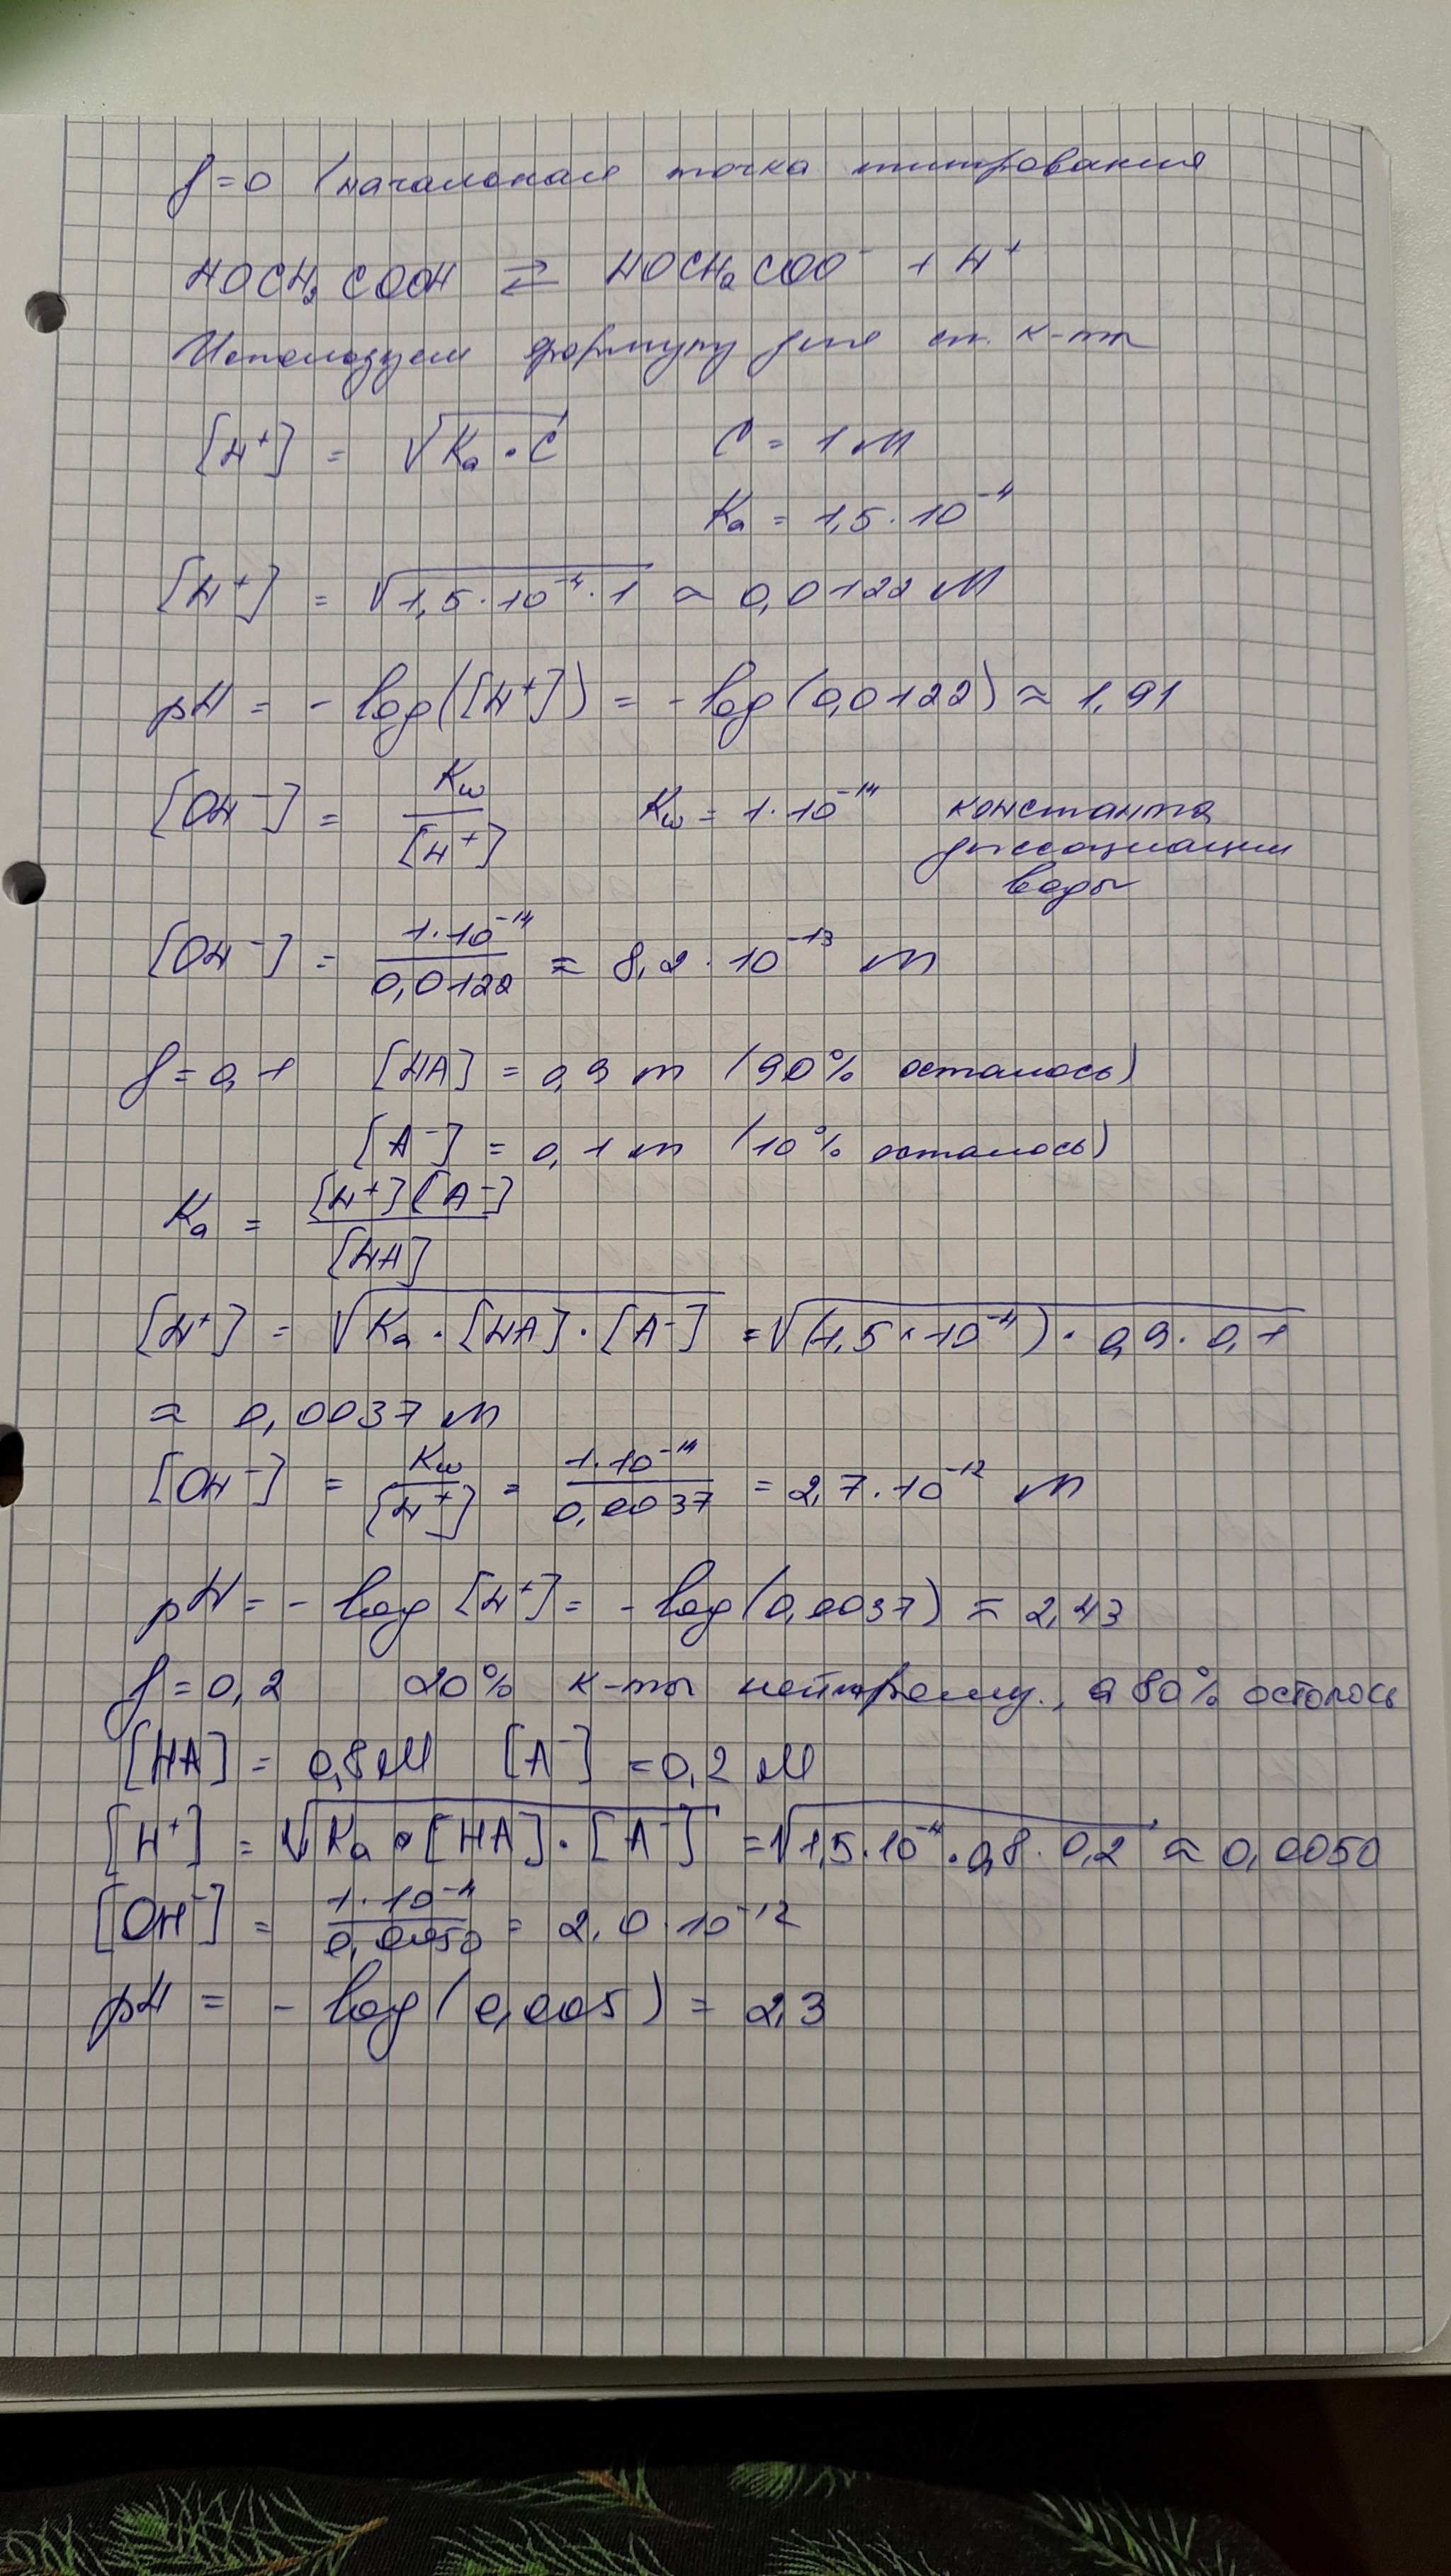 f=0 (начальная точка титрования
HOCH₂COOH ⇄ HOCH₂COO⁻ + H⁺
Используем формулу для сл. к-ты
[H⁺] = √Kₐ·C C = 1 M
Kₐ = 1,5·10⁻⁴
[H⁺] = √1,5·10⁻⁴·1 ≈ 0,0122 M
pH = -log([H⁺]) = -log(0,0122) ≈ 1,91
[OH⁻] = Kw/[H⁺] Kw = 1·10⁻¹⁴ константа
диссоциации
воды
[OH⁻] = 1·10⁻¹⁴/0,0122 ≈ 8,2·10⁻¹³ M
f=0,1 [HA] = 0,9 m (90% осталось)
[A⁻] = 0,1 m (10% осталось)
Kₐ = [H⁺][A⁻]/[HA]
[H⁺] = √Kₐ·[HA]·[A⁻] = √(1,5·10⁻⁴)·0,9·0,1
≈ 0,0037 M
[OH⁻] = Kw/[H⁺] = 1·10⁻¹⁴/0,0037 = 2,7·10⁻¹² M
pH = -log[H⁺] = -log(0,0037) = 2,43
f=0,2 20% к-ты нейтрализ., а 80% осталось
[HA] = 0,8M [A⁻] = 0,2 M
[H⁺] = √Kₐ·[HA]·[A⁻] = √1,5·10⁻⁴·0,8·0,2 ≈ 0,0050
[OH⁻] = 1·10⁻⁴/0,0050 = 2,0·10⁻¹²
pH = -log(0,005) = 2,3